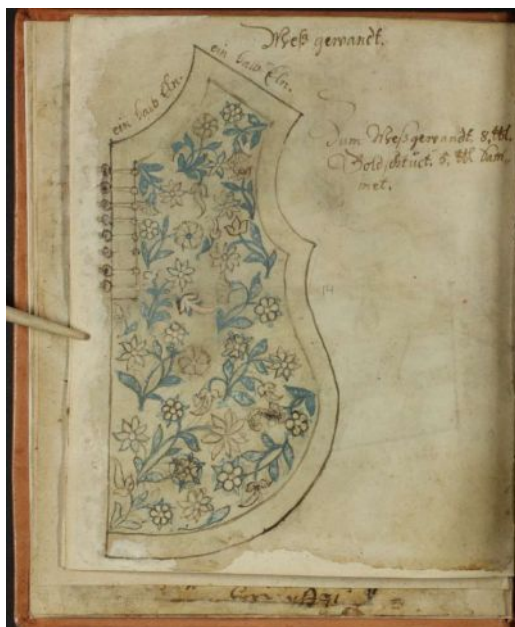 Meß gewandt.
ein halb Eln.
ein halb Eln.
Zum Meßgewandt 8.
Goldtstuck. 5. Sam-
met.